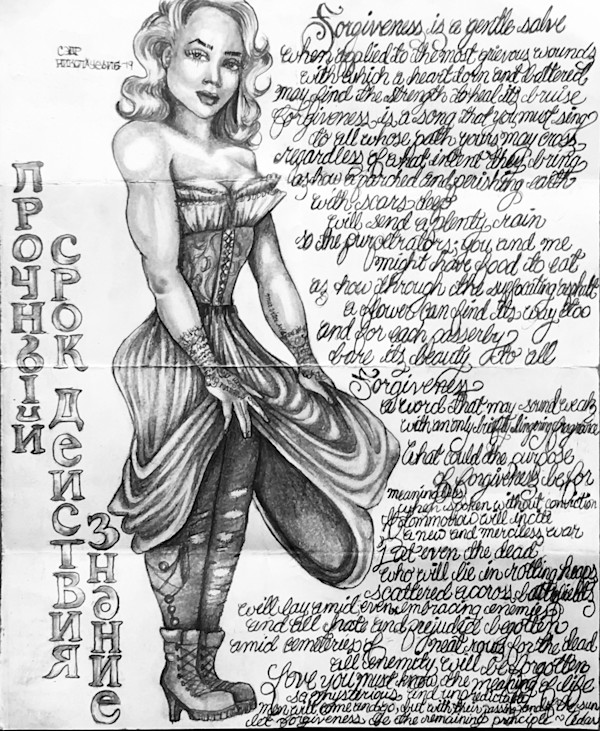 ПРОЧНЫЙ
СРОК ДЕИСТВИЯ
ЗНЭНИЕ
Forgiveness is a gentle salve
when applied to the most grievous wounds
with which a heart torn and battered
may find the strength to heal its bruise
Forgiveness is a song that you must sing
to all whose path yours may cross
regardless of what intent they bring
as how a parched and perishing earth
with scars deep
will send a plenty rain
so the purpetrators; you and me
might have food to eat
as how through the suffocating asphalt
a flower can find its way too
and for each passerby
bare its beauty to all
Forgiveness
a word that may sound weak
with an only bright lingering fragrance
What could the purpose
of forgiveness be for
meaningless
when spoken without conviction
A tommorow will incite
a new and merciless war
Yet even the dead
who will lie in rotting heaps
scattered across battlefields
will lay amid even embracing enemies
and all hate and prejudice begotten
amid cemeteries of neat rows for the dead
all enemity will be forgotten
Love you must know, the making of life
so mysterious and unpredictable
men will come and go, but with their passing and of the sun
let forgiveness be the remaining principle ~